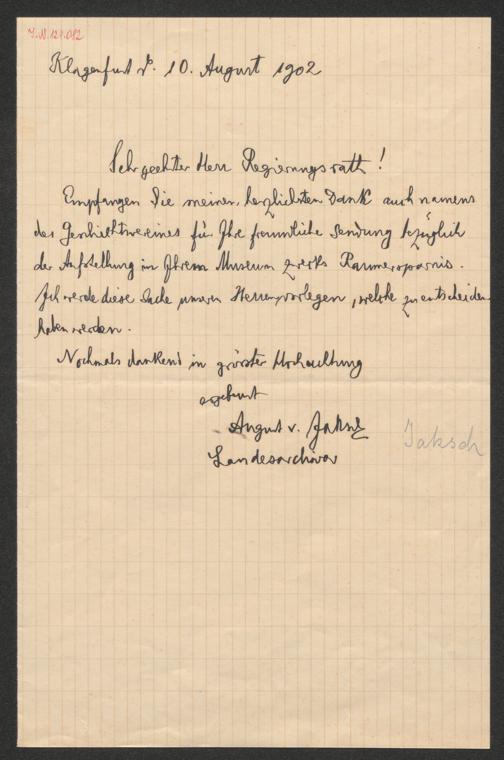 I.N. 121.012
Klagenfurt 10. August 1902
Sehr geehrter Herr Regierungsrath!
Empfangen Sie meinen herzlichsten Dank auch namens
des Geschichtsvereines für Ihre freundliche Sendung bezüglich
der Aufstellung in Ihrem Museum zwecks Raumersparnis.
Ich werde diese Sache unseren Herren vorlegen, welche zu entscheiden
haben werden.
Nochmals dankend in grösster Hochachtung
ergebenst
August v. Jaksch
Jaksch
Landesarchivar